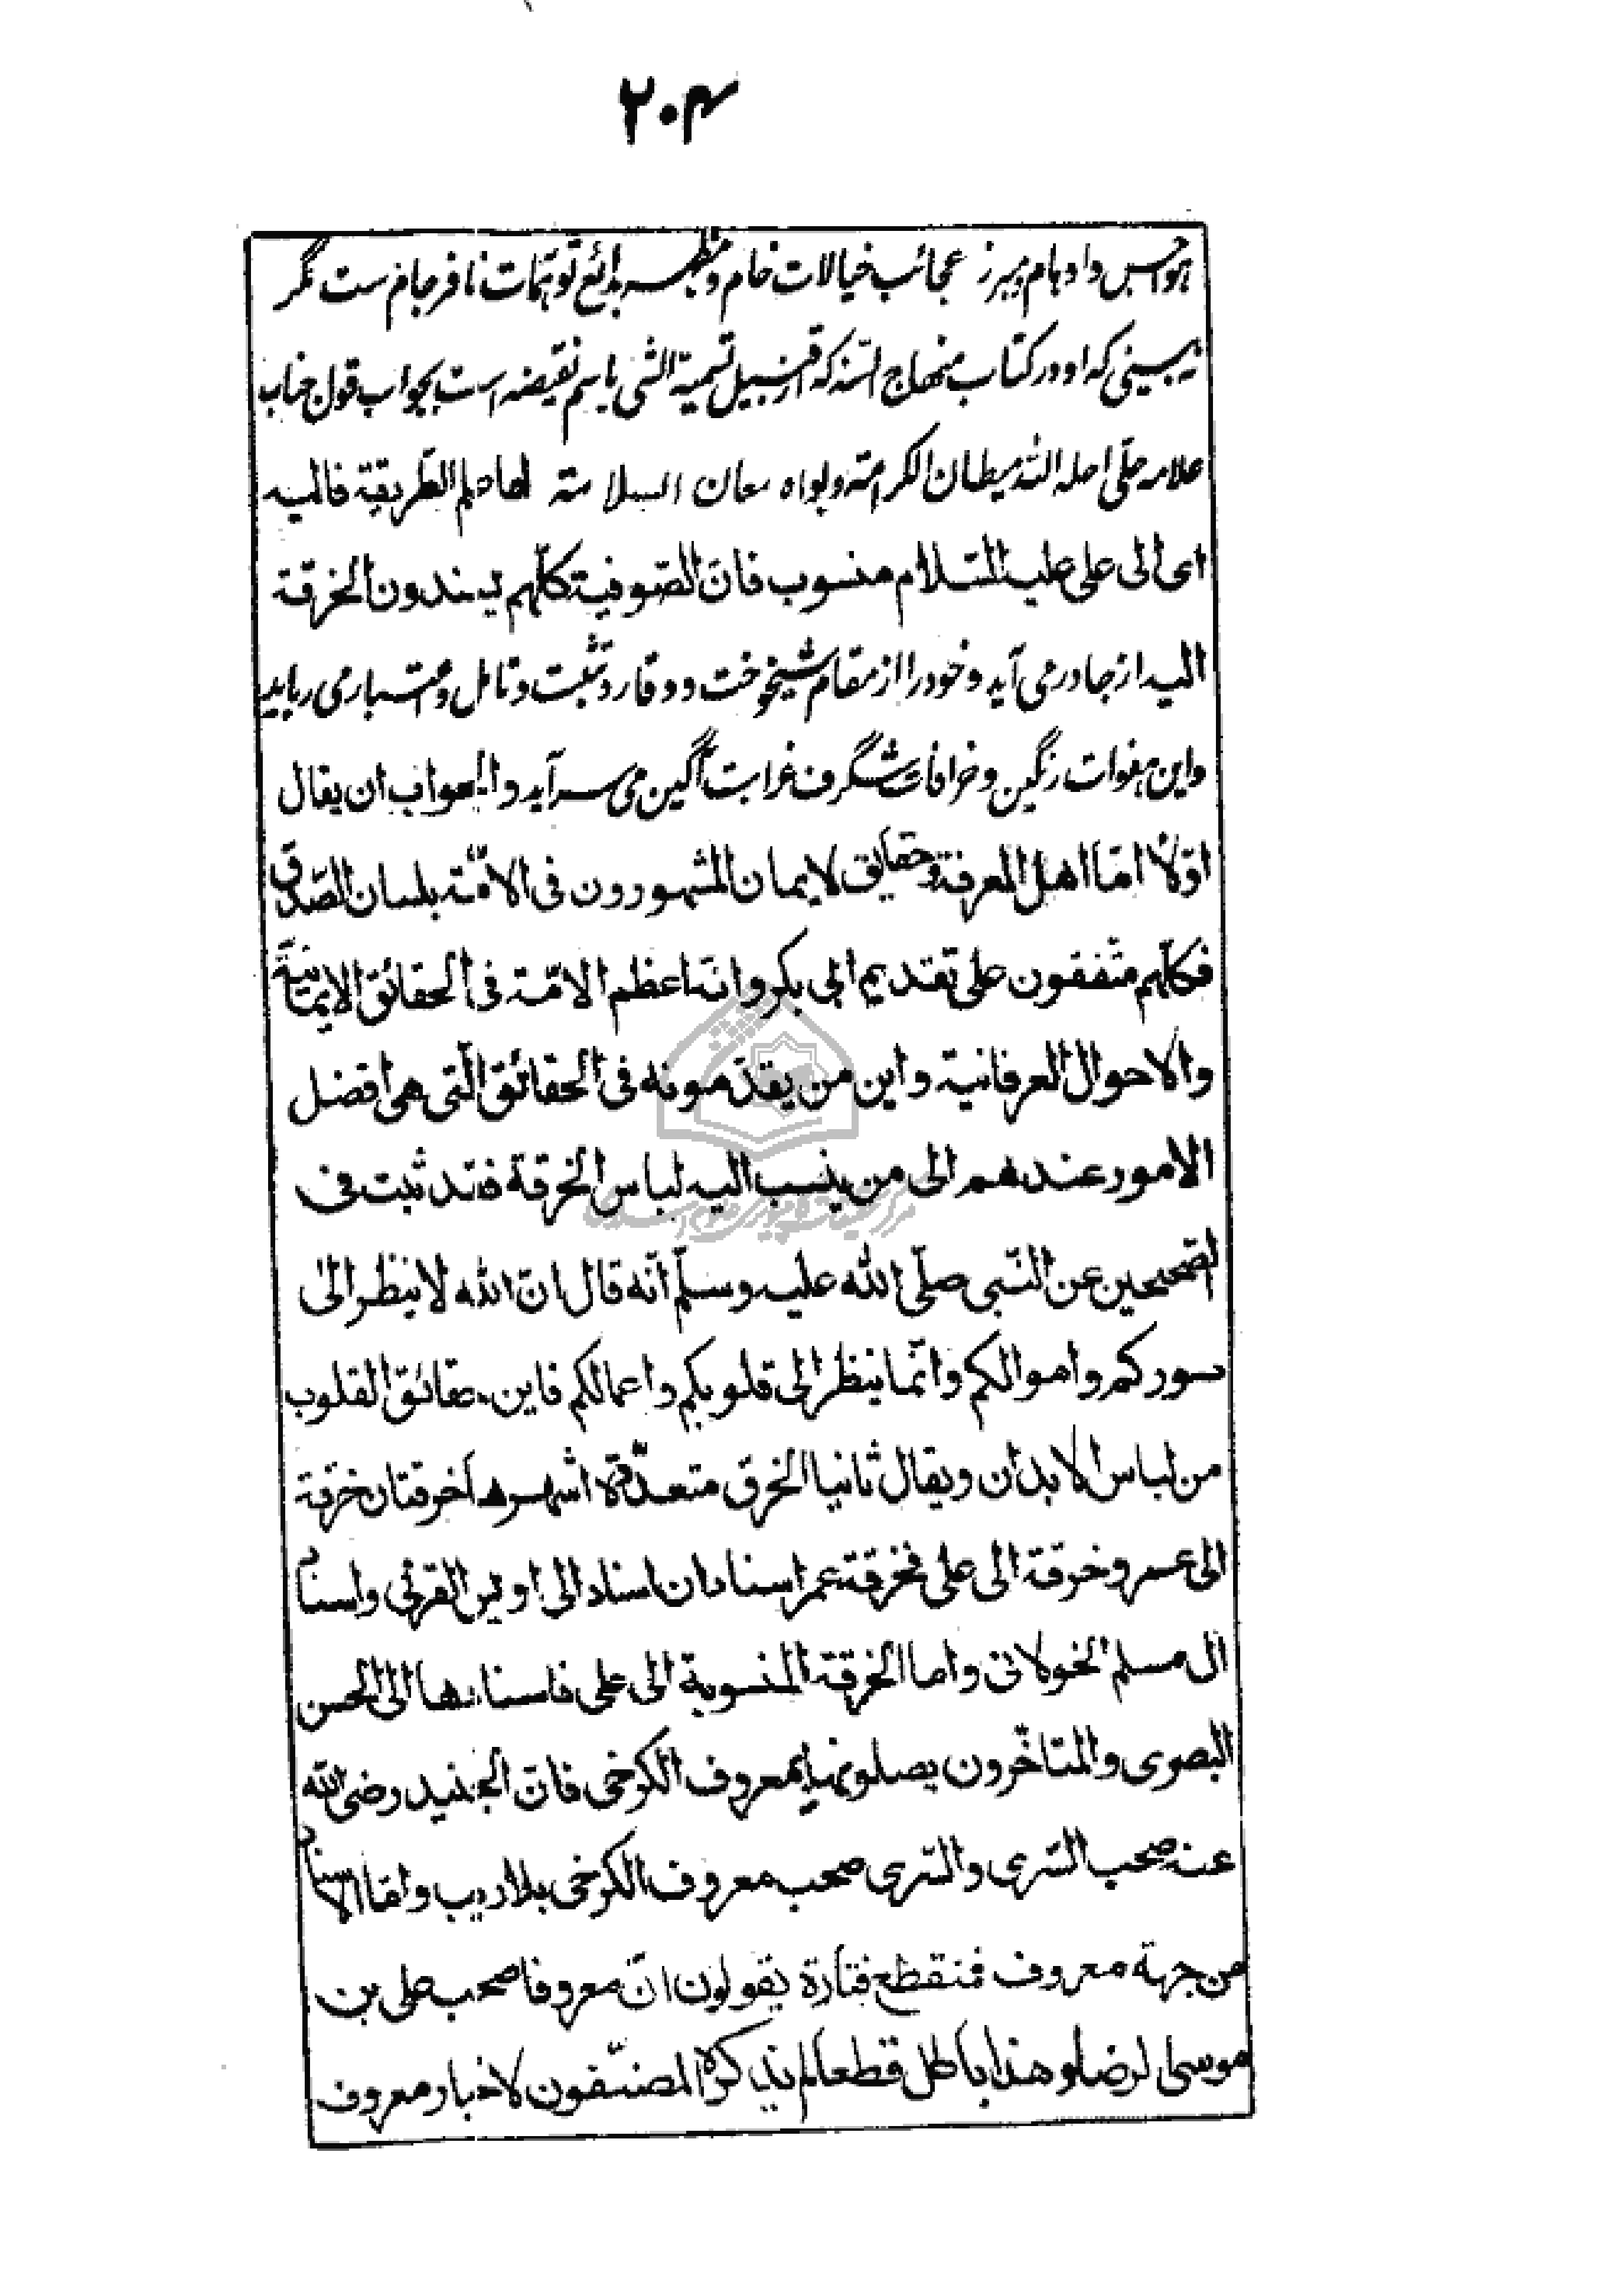 ۲۰۴
هواجس و اوهام و مبرز عجائب خیالات خام و مظهر بدائع توهمات نافرجام ست نگر
بسینی که او در کتاب منهاج السنه که از قبیل تسمیة الشی باسم نقیضه است بجواب قول جناب
علامه حلّی احله الله میطان الکرامة و بواه معان السلامة اما علم الطریقة فالیه
ای الی علی علیه السّلام منسوب فانّ الصّوفیة کلّهم یسندون الخرقة
الیه از جا در می آید و خود را از مقام شیخوخت و وقار و تثبت و تامل و می رباید
و این هفوات رنگین و خرافات شگرف غرابت آگین می سراید و الجواب ان یقال
اوّلا امّا اهل المعرفة و حقایق لایمان المشهورون فی الامّة بلسان الصّدق
فکلّهم متّفقون علی تقدیم ابی بکر و انّه اعظم الامّة فی الحقائق الایمانیّة
والاحوال العرفانیة و این من یقدّمونه فی الحقائق الّتی هی افضل
الامور عندهم الی من ینسب الیه لباس الخرقة فقد ثبت فی
الصّحیحین عن النّبی صلّی الله علیه وسلّم انّه قال انّ الله لا ینظر الی
صورکم و اموالکم و انّما ینظر الی قلوبکم و اعمالکم فاین حقائق القلوب
من لباس الابدان و یقال ثانیا الخرق متعدّدة اشهرها خرقتان خرقة
الی عمر و خرقة الی علی فخرقة عمر اسنادان اسناد الی اویس القرنی و اسناد
الی مسلم الخولانی و اما الخرقة المنسوبة الی علی فاسنادها الی الحسن
البصری و المتاخّرون یصلونها بمعروف الکرخی فانّ الجنید رضی الله
عنه صحب السّری و السّری صحب معروف الکرخی بلا ریب و امّا الاسناد
من جهة معروف فمنقطع فتارة یقولون انّ معروفا صحب علی بن
موسی لرضا و هذا باطل قطعا لم یذکره المصنّفون لاخبار معروف